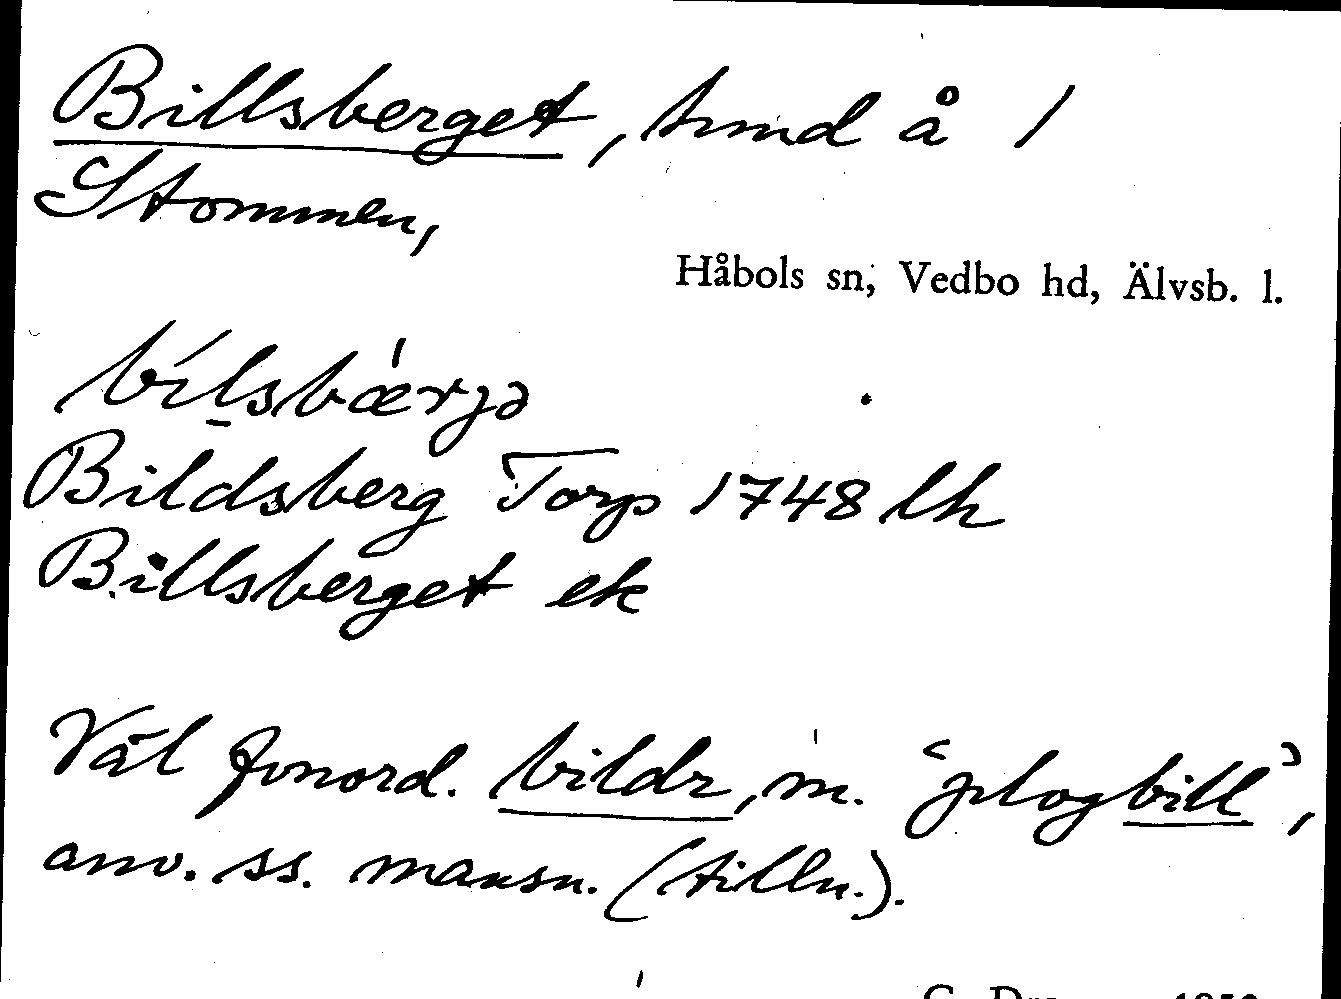 Billsberget, hmd å 1
Stommen,
Håbols sn, Vedbo hd, Älvsb. l.
bílsbæ̀rjə
Bildsberg Torp 1748 lh
Billsberget ek
Väl fvnord. bildr, m. "plogbill",
anv. ss. mansn. (tilln.).